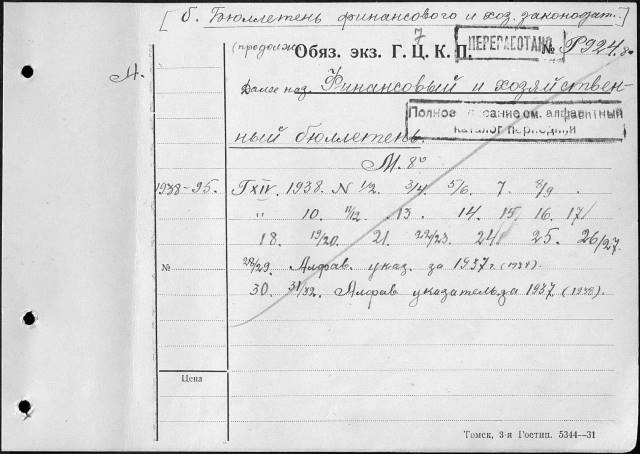 [б. Бюллетень финансового и хоз. законодат.]
7
(продолж.) Обяз. экз. Г. Ц. К. П. ПЕРЕРАБОТАНО № P924.80
А.
Далее наз. Финансовый и хозяйствен-
Полное описание см. алфавитный
каталог периодики
ный бюллетень.
М. 8°
1938-95. Г XIV. 1938. N 1/2. 3/4. 5/6. 7. 8/9.
" 10. 11/12. 13. 14. 15. 16. 17
18. 19/20. 21. 22/23. 24 25. 26/27.
№ 28/29. Алфав. указ. за 1937 г. (1938).
30. 31/32. Алфав указатель за 1937 (1938).
Цена
Томск, 3-я Гостип. 5344—31